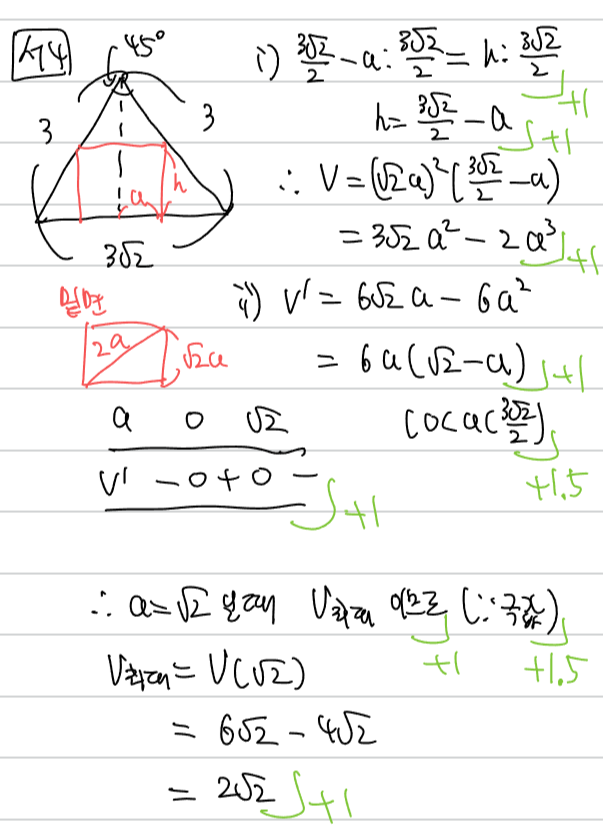 서4
45°
3
3
a
h
3√2
밑면
2a
√2a
i) 3√2/2 - a : 3√2/2 = h : 3√2/2 +1
h = 3√2/2 - a +1
∴ V = (√2a)²(3√2/2 - a)
= 3√2 a² - 2a³ +1
ii) V' = 6√2 a - 6a²
= 6a(√2 - a) +1
(0<a<3√2/2) +1.5
a 0 √2
V' - 0 + 0 - +1
∴ a = √2 일때 V최대 이므로 (∵ 극값) +1 +1.5
V최대 = V(√2)
= 6√2 - 4√2
= 2√2 +1